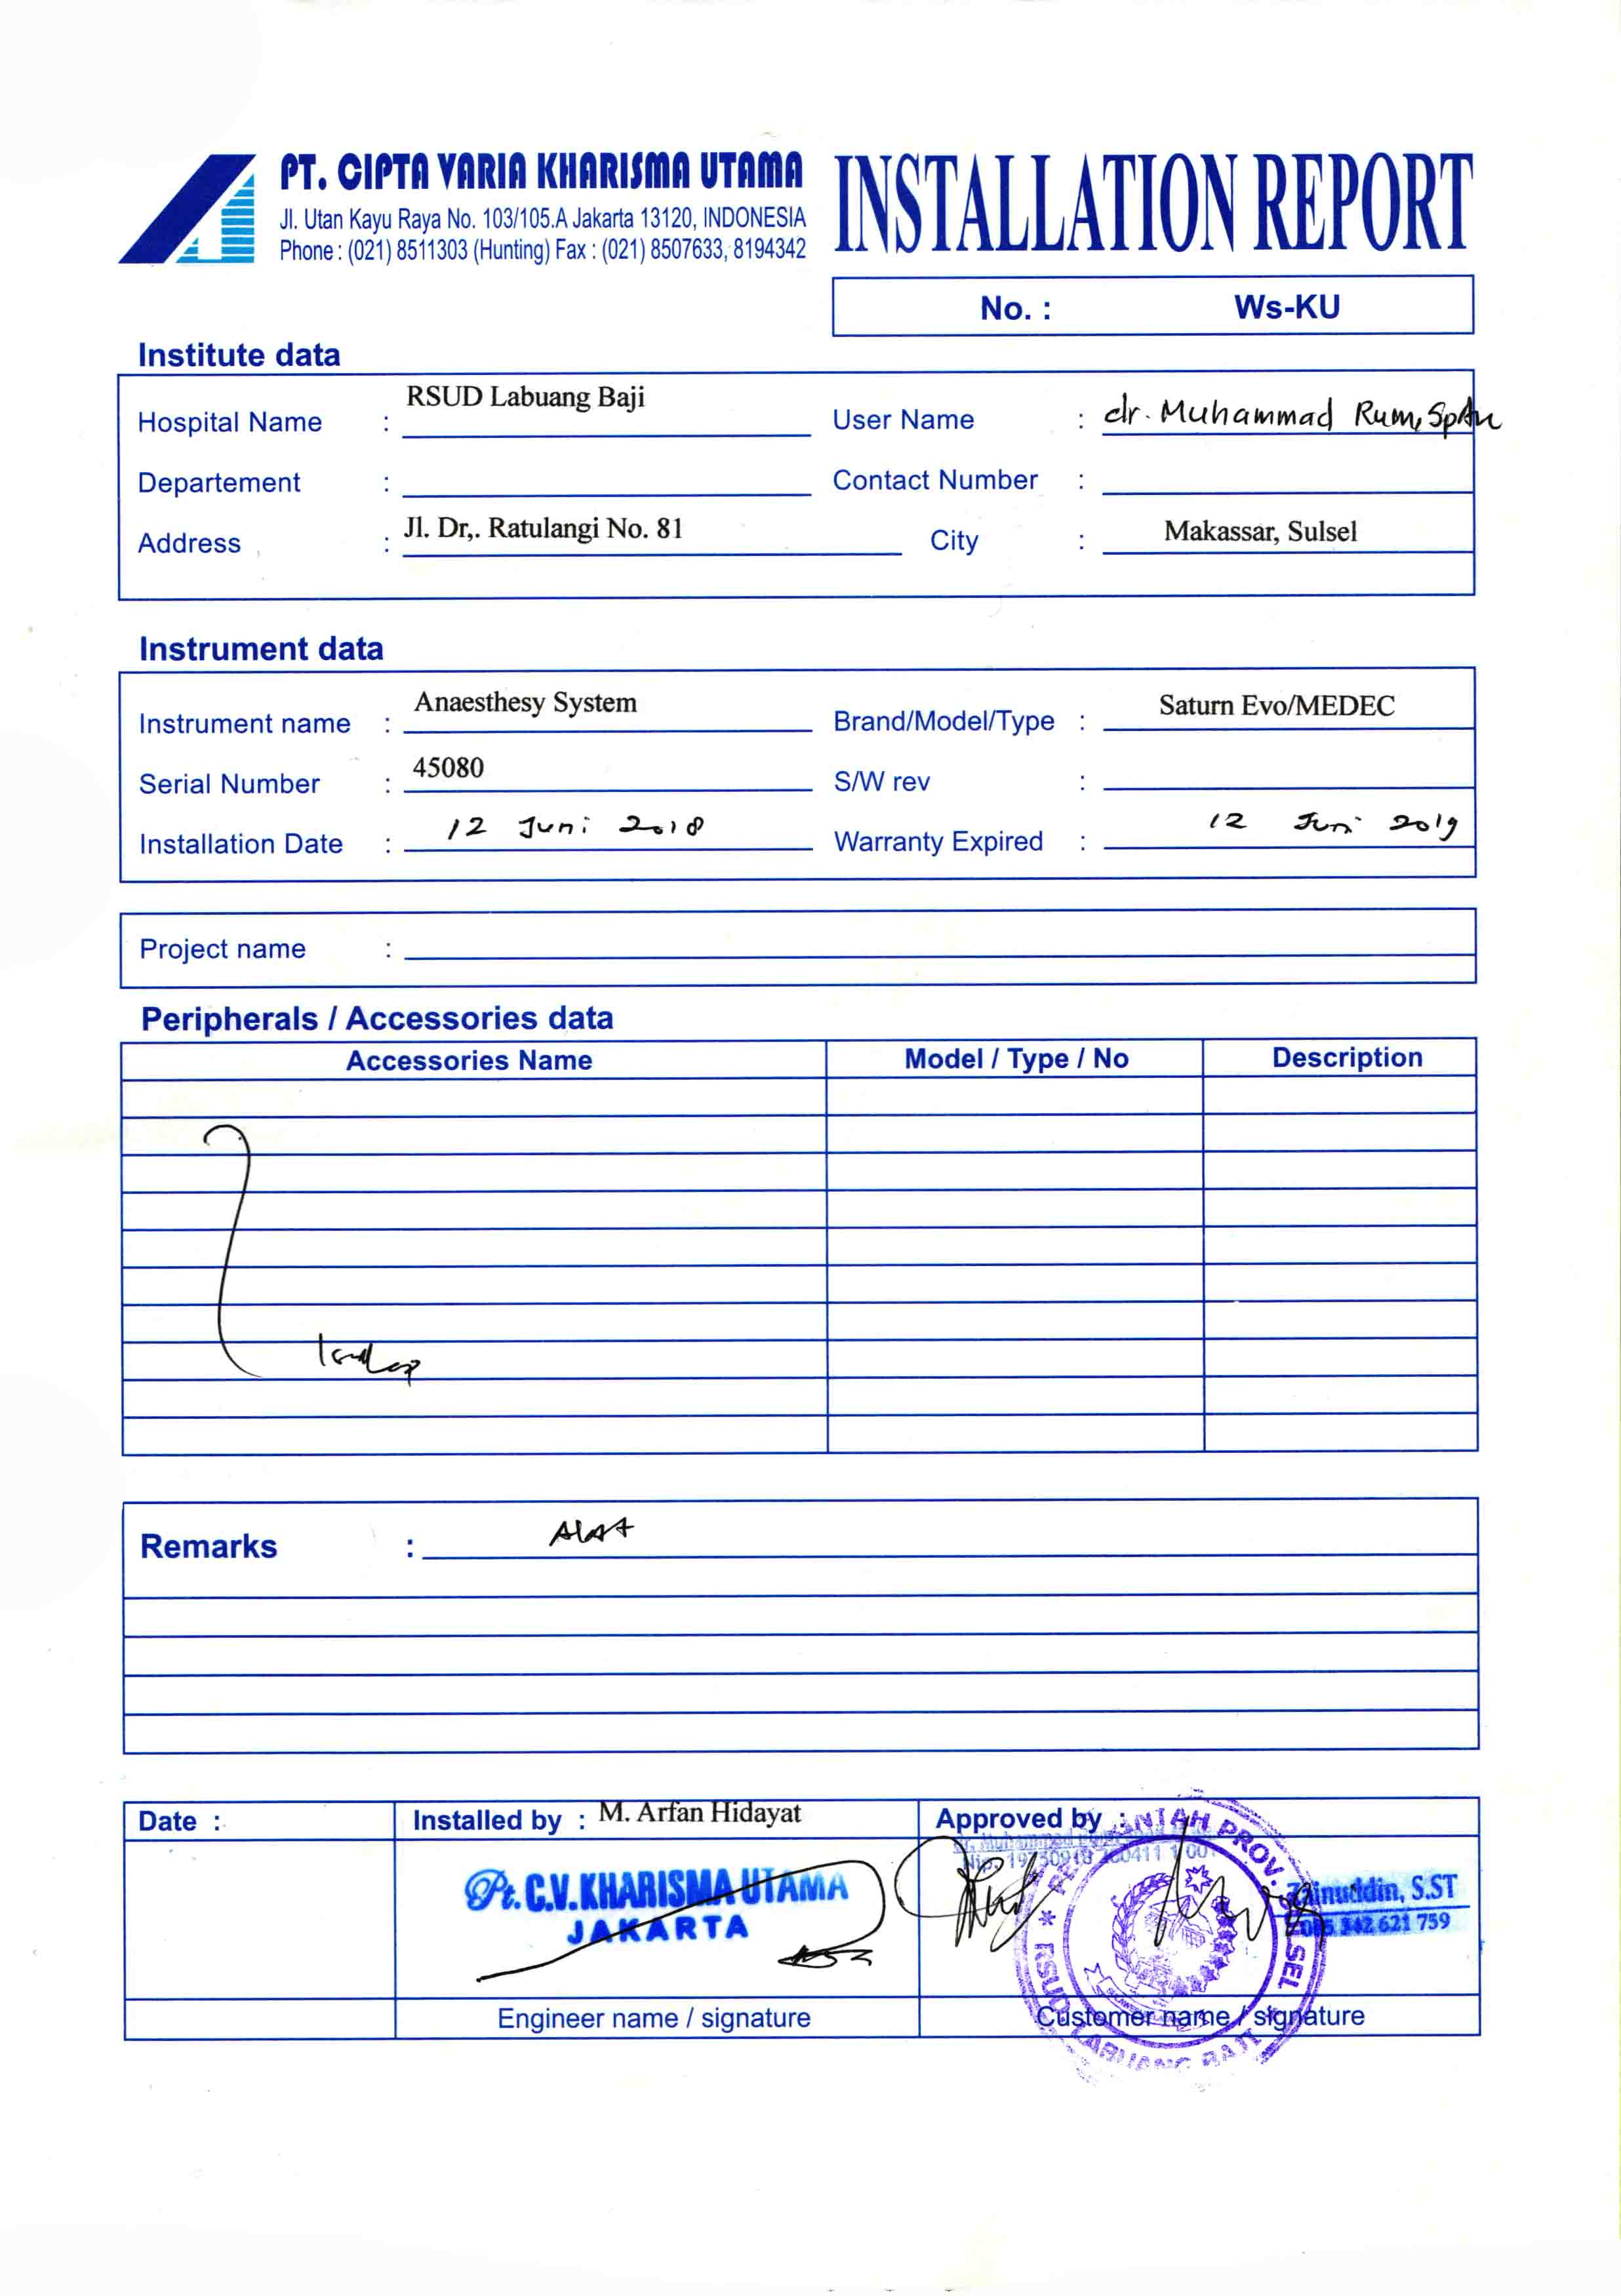 PT. CIPTA VARIA KHARISMA UTAMA
Jl. Utan Kayu Raya No. 103/105.A Jakarta 13120, INDONESIA
Phone : (021) 8511303 (Hunting) Fax : (021) 8507633, 8194342
INSTALLATION REPORT
No. : Ws-KU
Institute data
Hospital Name : RSUD Labuang Baji User Name : dr. Muhammad Rum, SpAn
Departement : Contact Number :
Address : Jl. Dr,. Ratulangi No. 81 City : Makassar, Sulsel
Instrument data
Instrument name : Anaesthesy System Brand/Model/Type : Saturn Evo/MEDEC
Serial Number : 45080 S/W rev :
Installation Date : 12 Juni 2018 Warranty Expired : 12 Juni 2019
Project name :
Peripherals / Accessories data
Accessories Name Model / Type / No Description
Remarks : Alat
Date : Installed by : M. Arfan Hidayat Approved by :
Pt. C.V. KHARISMA UTAMA
JAKARTA
PROV. SEL
RSUD. LABUANG BAJI
Zainuddin, S.ST
342 621 759
Engineer name / signature Customer name / signature